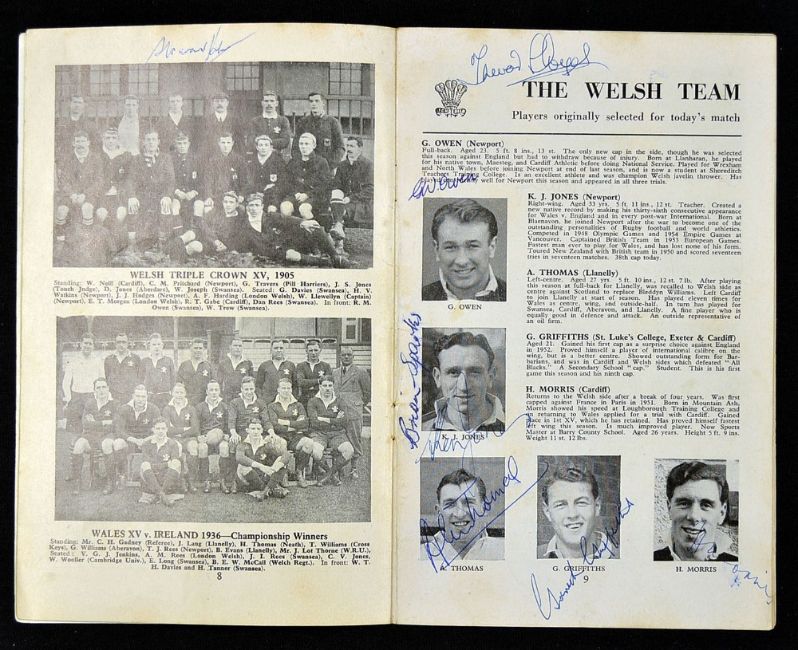 WELSH TRIPLE CROWN XV, 1905
Standing: W. Neill (Cardiff), C. M. Pritchard (Newport), G. Travers (Pill Harriers), J. S. Jones
(Touch Judge), D. Jones (Aberdare), W. Joseph (Swansea). Seated: G. Davies (Swansea), H. V.
Watkins (Newport), J. J. Hodges (Newport), A. F. Harding (London Welsh), W. Llewellyn (Captain)
(Newport), E. T. Morgan (London Welsh), R. T. Gabe (Cardiff), Dan Rees (Swansea). In front: R. M.
Owen (Swansea), W. Trew (Swansea).
WALES XV v. IRELAND 1936—Championship Winners
Standing: Mr. C. H. Gadney (Referee), J. Lang (Llanelly), H. Thomas (Neath), T. Williams (Cross
Keys), G. Williams (Aberavon), T. J. Rees (Newport), B. Evans (Llanelly), Mr. J. Lot Thorne (W.R.U.),
Seated: V. G. J. Jenkins, A. M. Rees (London Welsh), J. I. Rees (Swansea), C. V. Jones,
W. Wooller (Cambridge Univ.), E. Long (Swansea), B. E. W. McCall (Welch Regt.). In front: W. T.
H. Davies and H. Tanner (Swansea).
8
THE WELSH TEAM
Players originally selected for today's match
G. OWEN (Newport)
Full-back. Aged 23. 5 ft. 8 ins., 13 st. The only new cap in the side, though he was selected
this season against England but had to withdraw because of injury. Born at Llanharan, he played
for his native town, Maesteg, and Cardiff Athletic before doing National Service. Played for Wrexham
and North Wales before joining Newport at end of last season, and is now a student at Shoreditch
Teachers Training College. Is an excellent athlete and was champion Welsh javelin thrower. Has
well for Newport this season and appeared in all three trials.
G Owen
G. OWEN
K. J. JONES (Newport)
Right-wing. Aged 33 yrs. 5 ft. 11 ins., 12 st. Teacher. Created a
new native record by making his thirty-sixth consecutive appearance
for Wales v. England and in every post-war International. Born at
Blaenavon, he joined Newport after the war to become one of the
outstanding personalities of Rugby football and world athletics.
Competed in 1948 Olympic Games and 1954 Empire Games at
Vancouver. Captained British Team in 1953 European Games.
Fastest man ever to play for Wales, and has lost none of his form.
Toured New Zealand with British team in 1950 and scored seventeen
tries in seventeen matches. 38th cap today.
A. THOMAS (Llanelly)
Left-centre. Aged 27 yrs. 5 ft. 10 ins., 12 st. 7 lb. After playing
this season at full-back for Llanelly, was recalled to Welsh side as
centre against Scotland to replace Bleddyn Williams. Left Cardiff
to join Llanelly at start of season. Has played eleven times for
Wales as centre, wing, and outside-half. In turn has played for
Swansea, Cardiff, Aberavon, and Llanelly. A fine player who is
equally good in defence and attack. An outside representative of
an oil firm.
Brian Sparks
K. J. JONES
G. GRIFFITHS (St. Luke's College, Exeter & Cardiff)
Aged 21. Gained his first cap as a surprise choice against England
in 1952. Proved himself a player of international calibre on the
wing, but is a better centre. Showed outstanding form for Bar-
barians, and was in Cardiff and Welsh sides which defeated "All
Blacks." A Secondary School "cap." Student. This is his first
game this season and his ninth cap.
H. MORRIS (Cardiff)
Returns to the Welsh side after a break of four years. Was first
capped against France in Paris in 1951. Born in Mountain Ash,
Morris showed his speed at Loughborough Training College and
on returning to Wales applied for a trial with Cardiff. Gained
place in 1st XV, which he has retained. Has proved himself fastest
left wing this season. Is much improved player. Now Sports
Master at Barry County School. Aged 26 years. Height 5 ft. 9 ins.
Weight 11 st. 12 lbs.
A. THOMAS
G. GRIFFITHS
H. MORRIS
9